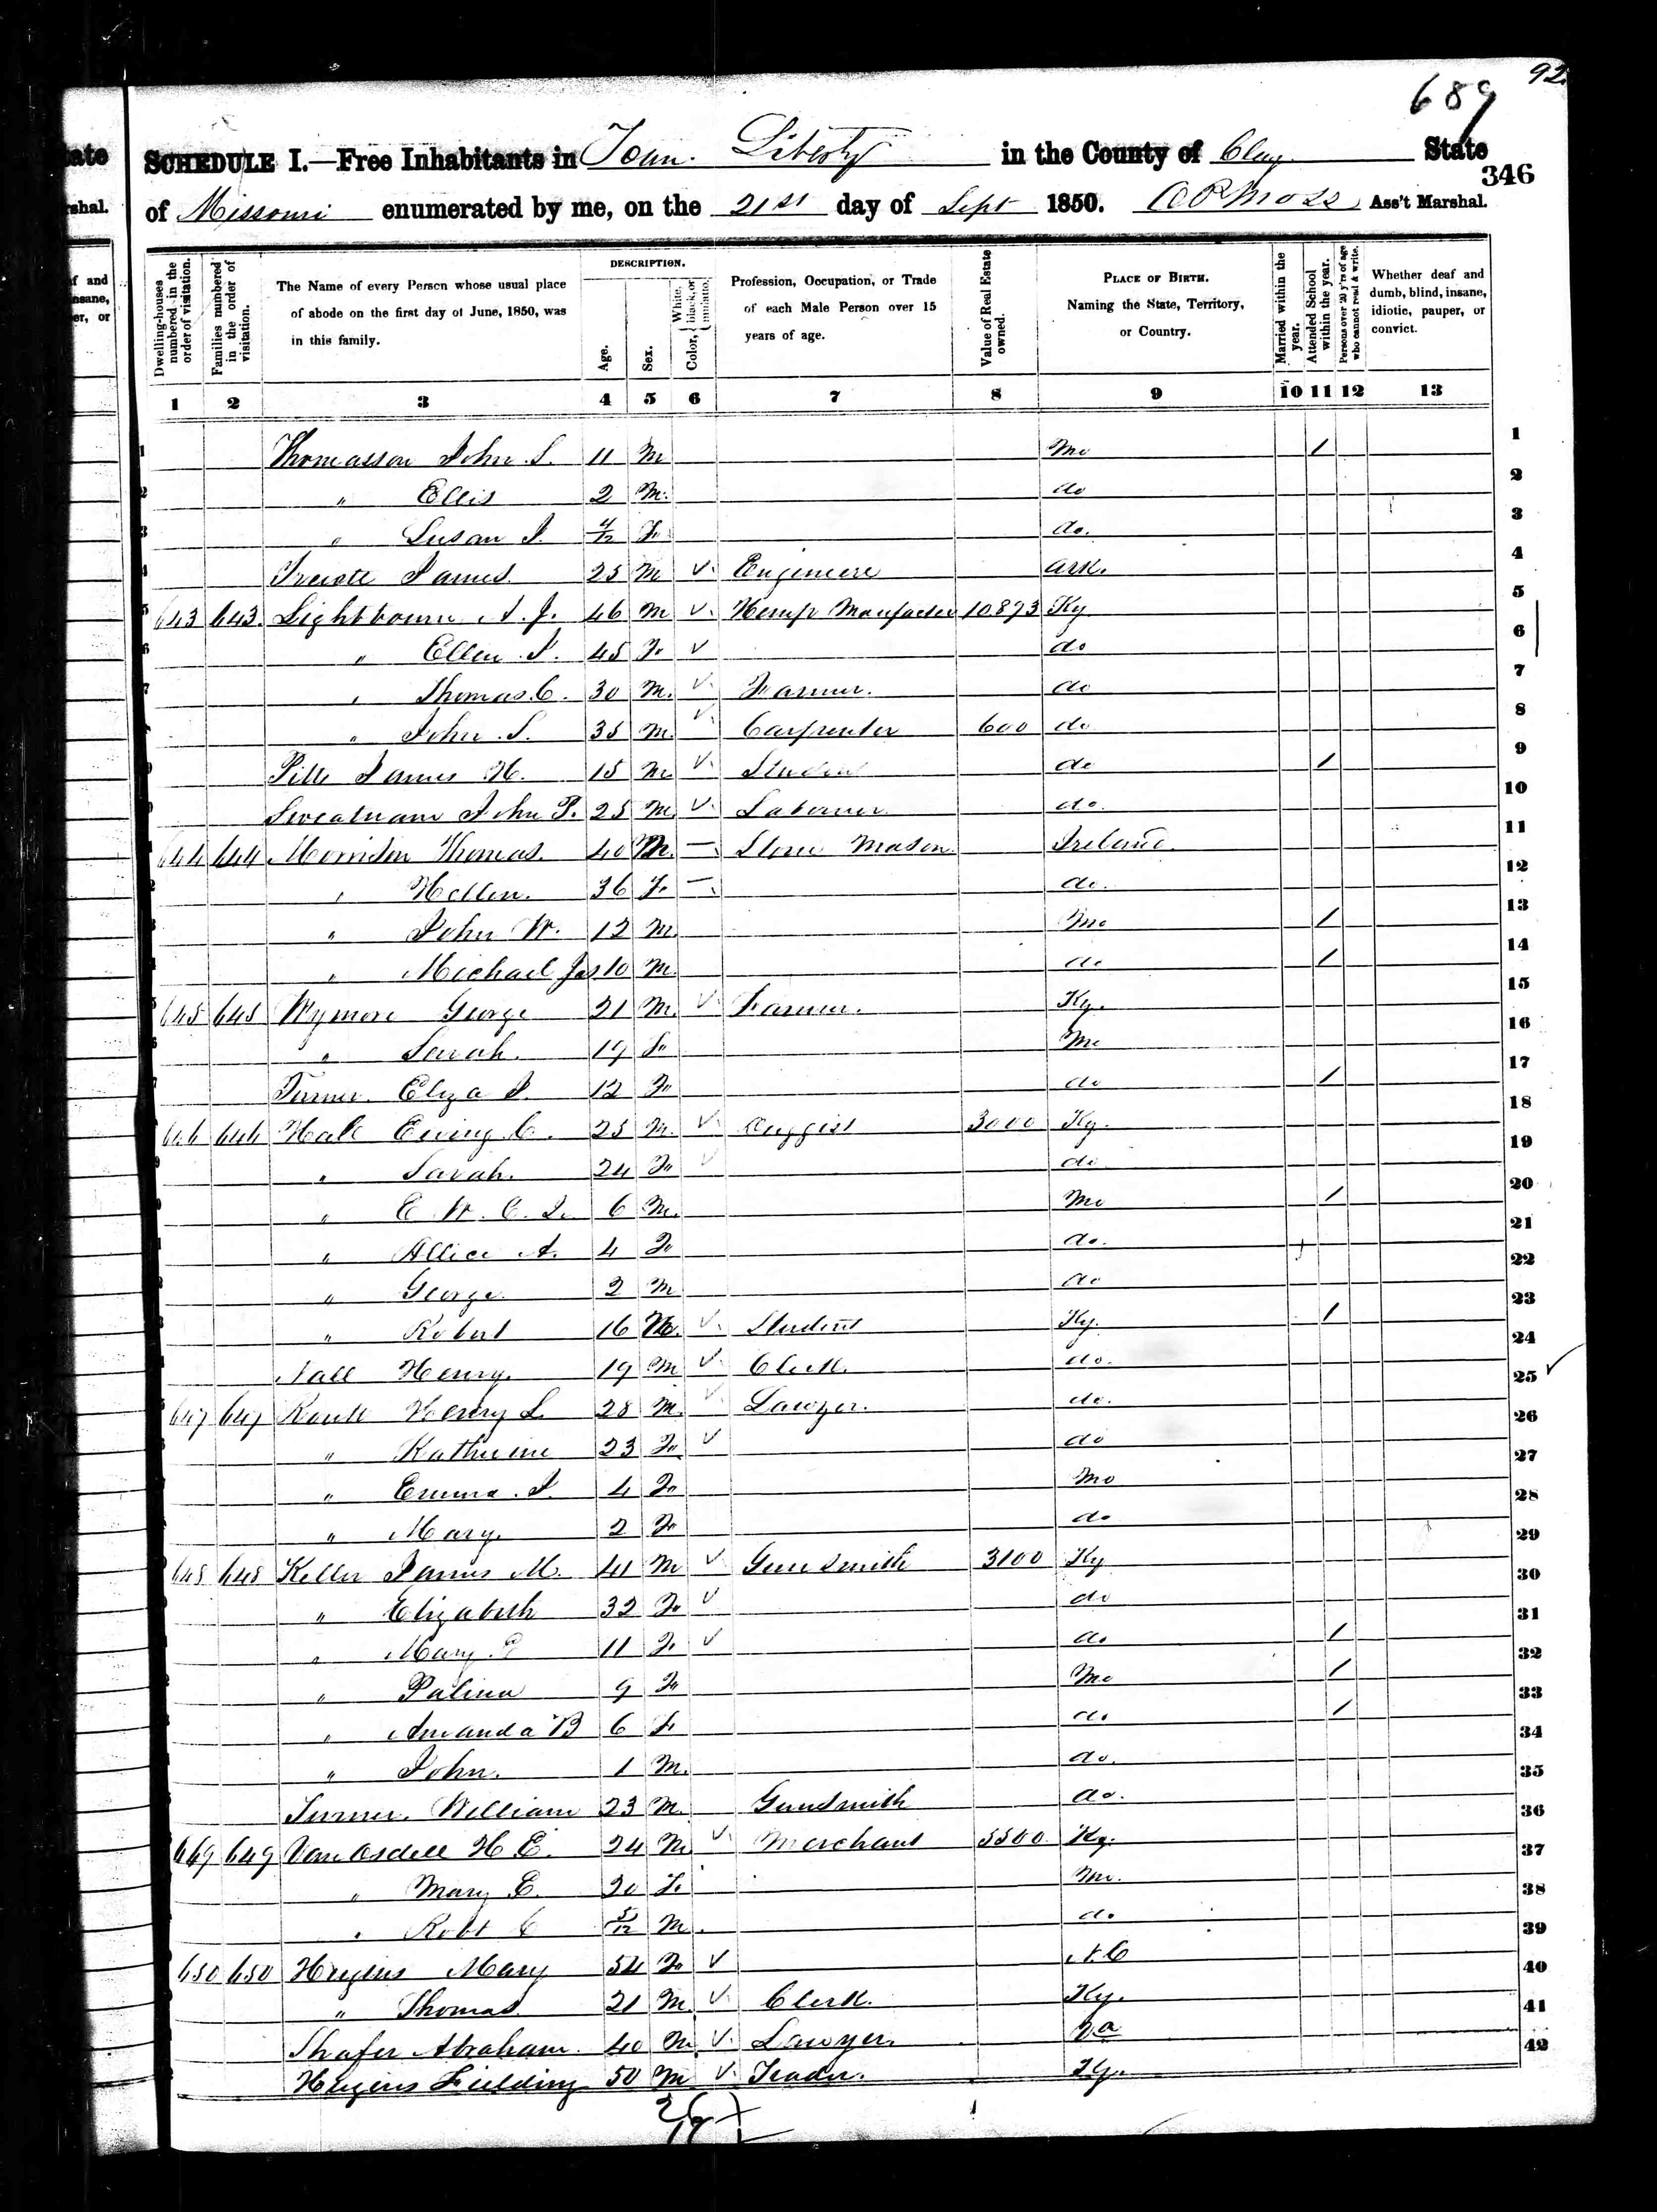 92
689
SCHEDULE I.—Free Inhabitants in Town Liberty in the County of Clay State
346
of Missouri enumerated by me, on the 21st day of Sept 1850. O P Moss Ass't Marshal.
Dwelling-houses numbered in the order of visitation.
Families numbered in the order of visitation.
The Name of every Person whose usual place of abode on the first day of June, 1850, was in this family.
DESCRIPTION.
Age.
Sex.
Color, White, black, or mulatto.
Profession, Occupation, or Trade of each Male Person over 15 years of age.
Value of Real Estate owned.
PLACE OF BIRTH. Naming the State, Territory, or Country.
Married within the year.
Attended School within the year.
Persons over 20 y'rs of age who cannot read & write.
Whether deaf and dumb, blind, insane, idiotic, pauper, or convict.
1 2 3 4 5 6 7 8 9 10 11 12 13
1 Thomasson John S. 11 M Mo / 1
2 " Ellis 2 M. do 2
3 " Susan J. 4/12 F. do. 3
4 James 25 M v. Engineere Ark. 4
5 643 643 Lightbourn A. J. 46 M v. Hemp Manfacter 10873 Ky 5
6 " Ellen J. 45 F v do 6
7 " Thomas C. 30 M. v. Farmer. do 7
" John S. 35 M. v. Carpenter 600 do 8
James H. 15 M v. Student do / 9
Sweatnam John P. 25 M. v. Laborer do. 10
644 644 Morrison Thomas. 40 M. — Stone Mason Ireland. 11
" Hellen. 36 F. — do. 12
" John W. 12 M. Mo / 13
" Michael Jas 10 M. do / 14
645 645 Wymore George 21 M. v Farmer. Ky. 15
" Sarah. 19 F Mo 16
Turner Eliza J. 12 F do / 17
646 646 Hall Ewing C. 25 M. v. Duggist 3000 Ky. 18
" Sarah. 24 F v do 19
" E W. C. 6 M. Mo / 20
" Allice A. 4 F do. 21
" George 2 M do 22
" Robert 16 M. v. Student Ky. / 23
Henry. 19 M v. Clerk. do. 24
647 647 Routt Henry L. 28 M. v Lawyer. do. 25 ✓
" Katherine 23 F. v do 26
" Emma J. 4 F Mo 27
" Mary. 2 F do 28
648 648 Keller James M. 41 M v Gunsmith 3100 Ky 29
" Elizabeth 32 F v do 30
" Mary E 11 F. v do / 31
" Palina 9 F Mo / 32
" Amanda B 6 F do / 33
" John. 1 M. do. 34
Turner. William 23 M. Gunsmith do. 35
649 649 Van Osdell H E. 24 M v. Merchant 5500 Ky. 36
" Mary E. 20 F. Mo. 37
" Robt C 5/12 M. do 38
650 650 Hugins Mary 54 F v N.C 39
" Thomas 21 M. v. Clerk. Ky. 40
Shafer Abraham. 40 M. v. Lawyer. 41
Hugins Fielding 50 M v. Trader. Ky. 42